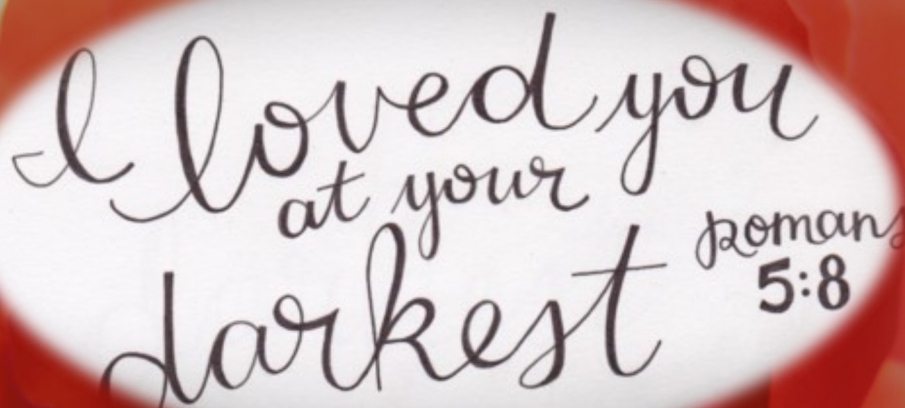 I loved you
at your
darkest
Romans
5:8